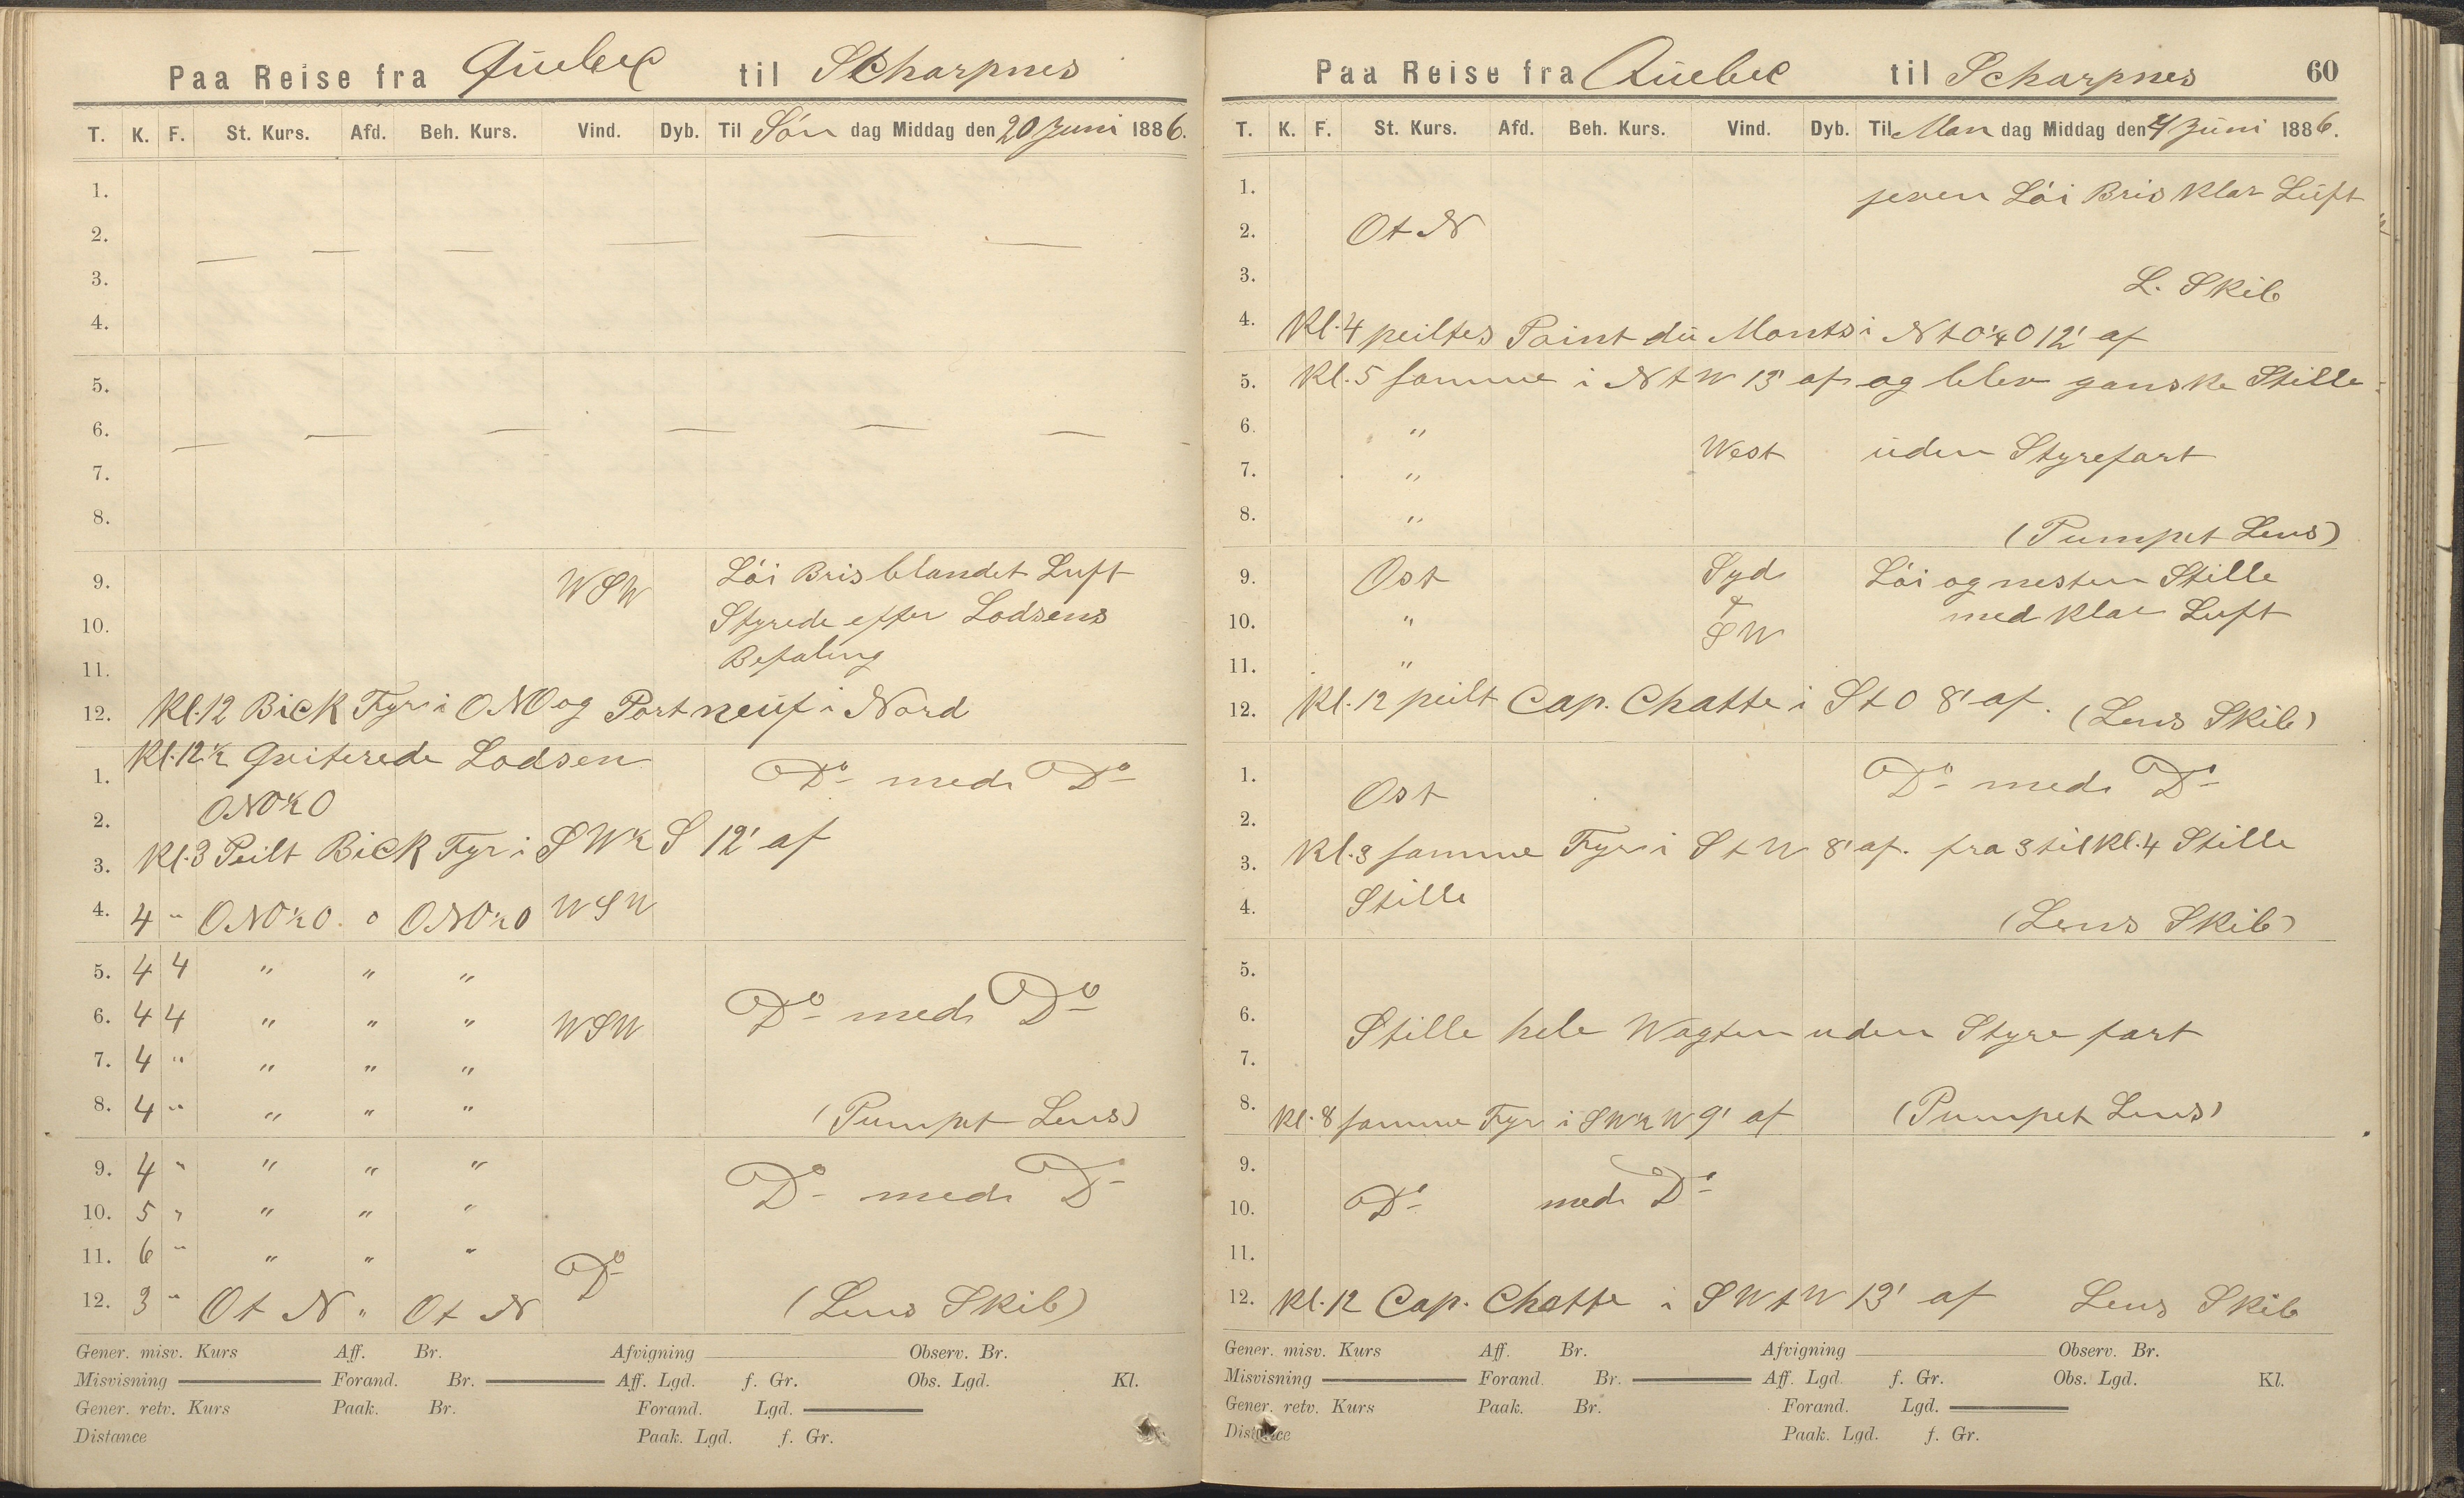 Paa Reise fra Quebec til Scharpnes
T. K. F. St. Kurs. Afd. Beh. Kurs. Vind. Dyb. Til Søn dag Middag den 20 Juni 1886.
1.
2. — — — — — —
3.
4.
5.
6. — — — — — —
7.
8.
9. WSW Löi Bris blandet Luft
10. Styrede efter Lodsens
11. Befaling
12. Kl. 12 Bick Fyr i ONO og Portneuf i Nord
Kl. 12½ Qviterede Lodsen
1. Do med Do
2. ONO½O
3. Kl. 3 Peilt Bick Fyr i SW½S 12' af
4. 4 " ONO½O. o ONO½O WSW
5. 4 4 " " "
6. 4 4 " " " WSW Do med Do
7. 4 " " " "
8. 4 " " " " (Pumpet Lens)
9. 4 " " " " Do med Do
10. 5 " " " "
11. 6 " " " " Do
12. 3 " Ot N " Ot N (Lens Skib)
Gener. misv. Kurs Aff. Br. Afvigning Observ. Br.
Misvisning Forand. Br. Aff. Lgd. f. Gr. Obs. Lgd. Kl.
Gener. retv. Kurs Paak. Br. Forand. Lgd.
Distance Paak. Lgd. f. Gr.
Paa Reise fra Quebec til Scharpnes 60
T. K. F. St. Kurs. Afd. Beh. Kurs. Vind. Dyb. Til Man dag Middag den 21 Juni 1886.
1. jeven Löi Bris Klar Luft
2. Ot N
3. L. Skib
4. Kl. 4 peiltes Point du Monts i NtO¼O 12' af
5. Kl. 5 samme i NtW 13' af og blev ganske Stille
6. " West uden Styrefart
7. "
8. " (Pumpet Lens)
9. Ost Syd Löi og nesten Stille
10. " t med Klar Luft
SW
11. "
12. Kl. 12 peilt Cap. Chatte i StO 8' af. (Lens Skib)
1. Do med Do
2. Ost
3. Kl. 3 samme Fyr i StW 8' af. fra 3 til Kl. 4 Stille
4. Stille (Lens Skib)
5.
6. Stille hele Wagten uden Styre fart
7.
8. Kl. 8 samme Fyr i SW½W 9' af (Pumpet Lens)
9.
10. Do med Do
11.
12. Kl. 12 Cap. Chatte i SWtW 13' af Lens Skib
Gener. misv. Kurs Aff. Br. Afvigning Observ. Br.
Misvisning Forand. Br. Aff. Lgd. f. Gr. Obs. Lgd. Kl.
Gener. retv. Kurs Paak. Br. Forand. Lgd.
Distance Paak. Lgd. f. Gr.